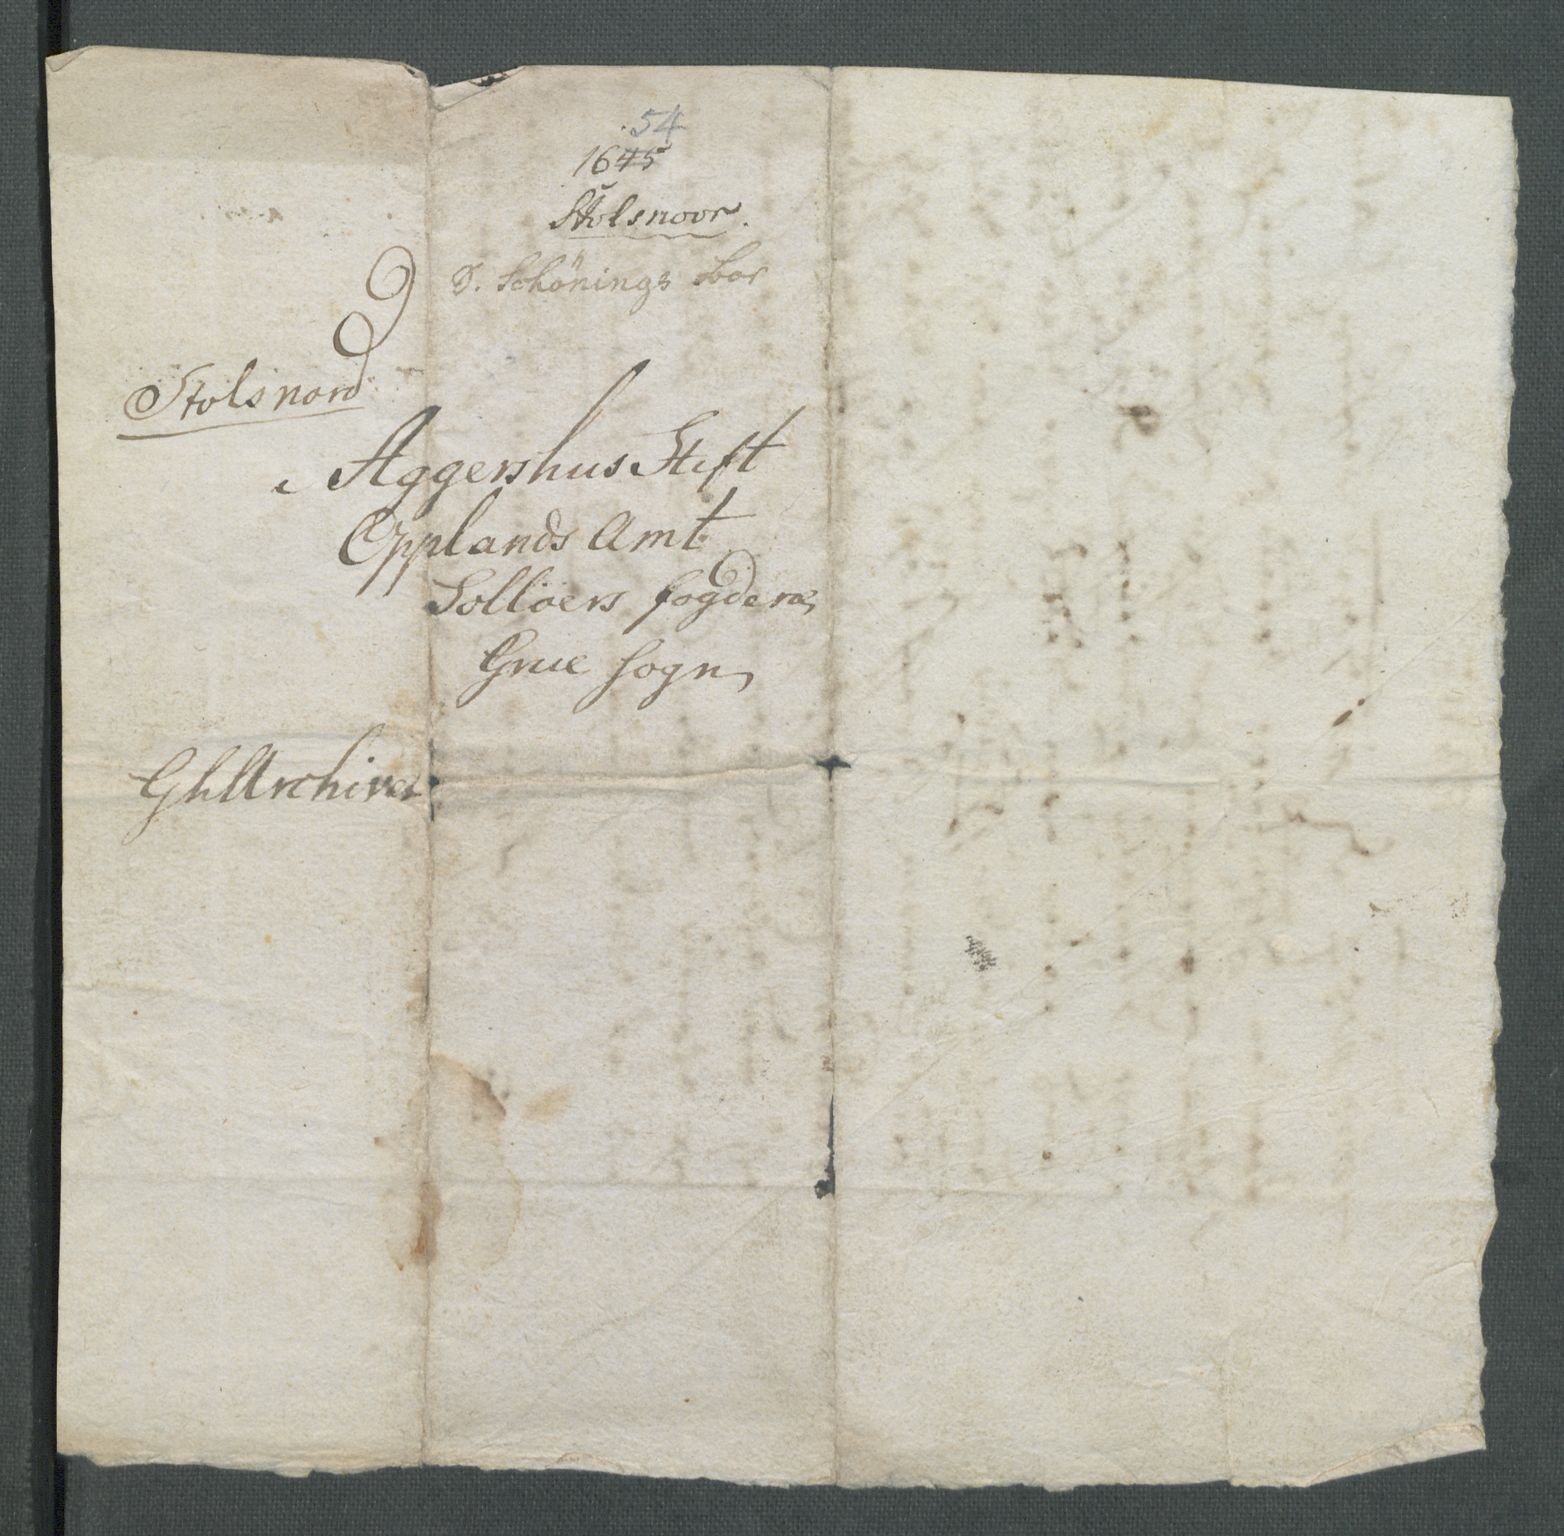 54
1645
Stolsnoor.
D. Schönings
Stolsnord
i Aggershus Stift
Opplands Amt
Solloers fogderæ
Grue sogn
Gh Archivet